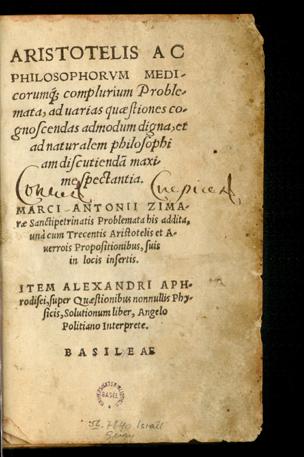 ARISTOTELIS AC
PHILOSOPHORVM MEDI-
corumq́; complurium Proble-
mata, ad varias quæstiones co-
gnoscendas admodum digna, et
ad naturalem philosophi
am discutiendã maxi
me spectantia.
MARCI ANTONII ZIMA-
ræ Sanctipetrinatis Problemata his addita,
unà cum Trecentis Aristotelis et A-
uerrois Propositionibus, suis
in locis insertis.
ITEM ALEXANDRI APH-
rodisei, super Quæstionibus nonnullis Phy-
sicis, Solutionum liber, Angelo
Politiano Interprete.
BASILEAE
BASEL